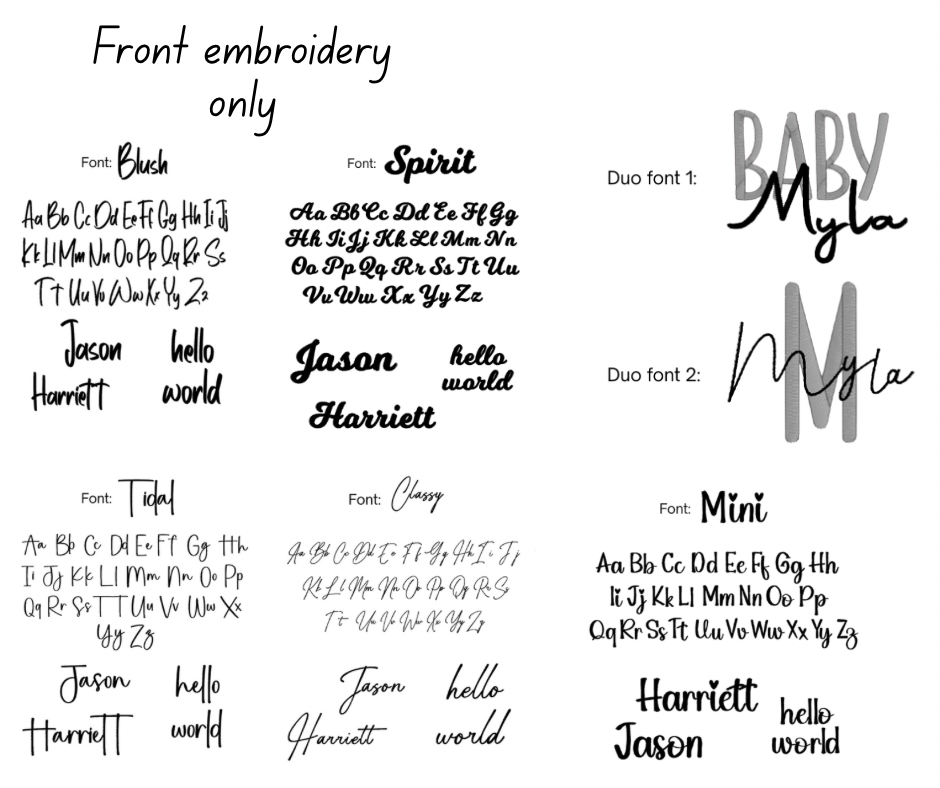 Front embroidery
only
Font: Blush
Aa Bb Cc Dd Ee Ff Gg Hh Ii Jj
Kk Ll Mm Nn Oo Pp Qq Rr Ss
Tt Uu Vv Ww Xx Yy Zz
Jason hello
Harriett world
Font: Spirit
Aa Bb Cc Dd Ee Ff Gg
Hh Ii Jj Kk Ll Mm Nn
Oo Pp Qq Rr Ss Tt Uu
Vv Ww Xx Yy Zz
Jason hello
world
Harriett
Duo font 1:
BABY
Myla
Duo font 2:
M
Myla
Font: Tidal
Aa Bb Cc Dd Ee Ff Gg Hh
Ii Jj Kk Ll Mm Nn Oo Pp
Qq Rr Ss TT Uu Vv Ww Xx
Yy Zz
Jason hello
Harriett world
Font: Classy
Aa Bb Cc Dd Ee Ff Gg Hh Ii Jj
Kk Ll Mm Nn Oo Pp Qq Rr Ss
Tt Uu Vv Ww Xx Yy Zz
Jason hello
Harriett world
Font: Mini
Aa Bb Cc Dd Ee Ff Gg Hh
Ii Jj Kk Ll Mm Nn Oo Pp
Qq Rr Ss Tt Uu Vv Ww Xx Yy Zz
Harriett
hello
Jason world